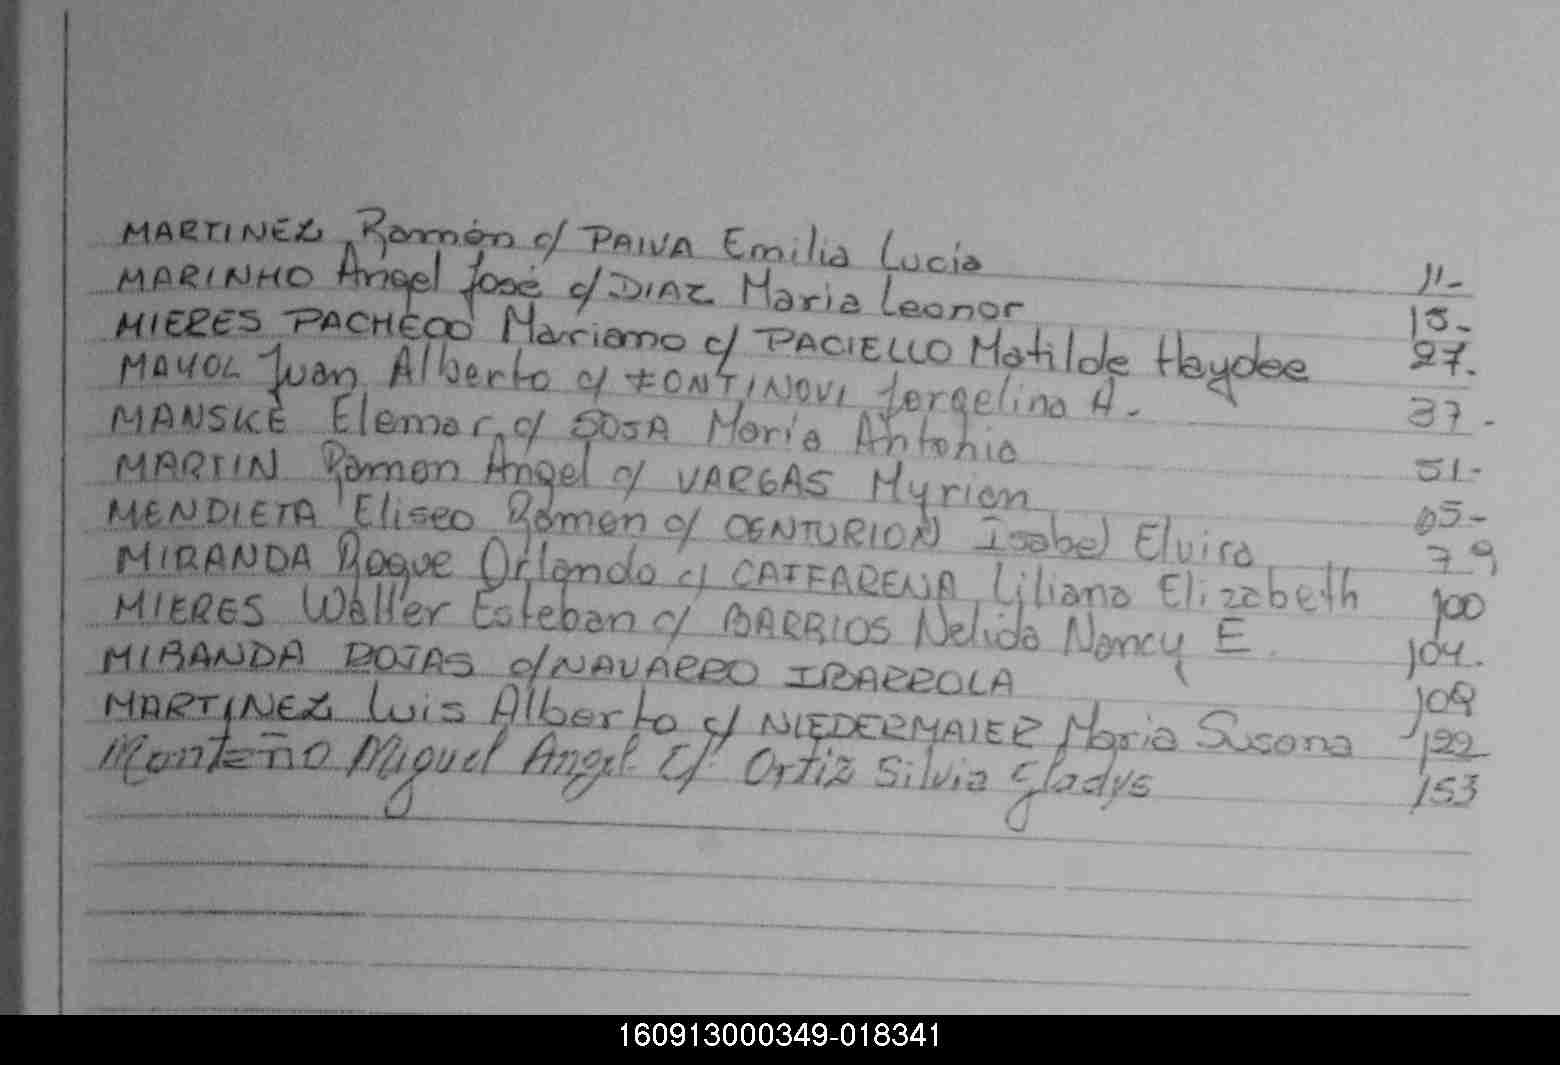 MARTINEZ Ramón c/ PAIVA Emilia Lucia 11-
MARINHO Angel José c/ DIAZ Maria Leonor 15-
MIERES PACHECO Mariano c/ PACIELLO Matilde Haydee 27.
MAYOL Juan Alberto c/ FONTINOVI Jorgelina A. 37-
MANSKE Elemar c/ SOSA Maria Antonia 51-
MARTIN Ramon Angel c/ VARGAS Myrian 65-
MENDIETA Eliseo Ramon c/ CENTURION Isabel Elvira 79
MIRANDA Roque Orlando c/ CATFARENA Liliana Elizabeth 100
MIERES Walter Esteban c/ BARRIOS Nelida Nancy E. 104.
MIRANDA ROJAS c/ NAVARRO IBARROLA
MARTINEZ Luis Alberto c/ NIEDERMAIER Maria Susana 122
Monteño Miguel Angel c/ Ortiz Silvia Gladys 153
160913000349-018341